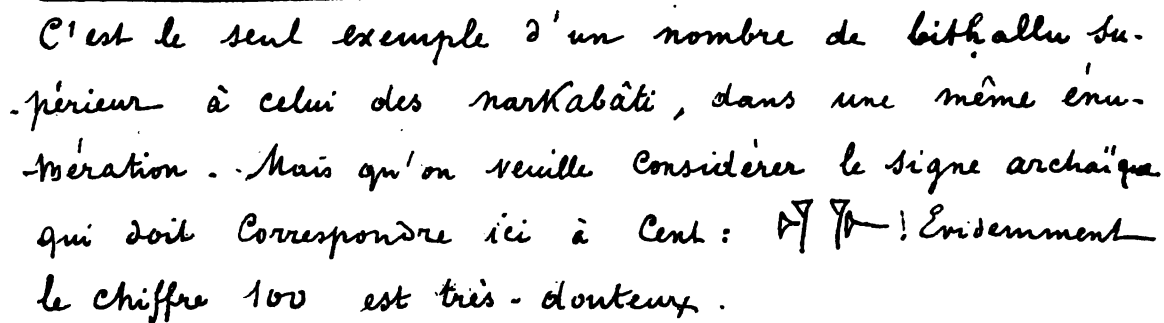 C'est le seul exemple d'un nombre de bithallu su-
-périeur à celui des narkabâti, dans une même énu-
-mération. Mais qu'on veuille considérer le signe archaïque
qui doit correspondre ici à cent : ! Evidemment
le chiffre 100 est très-douteux.